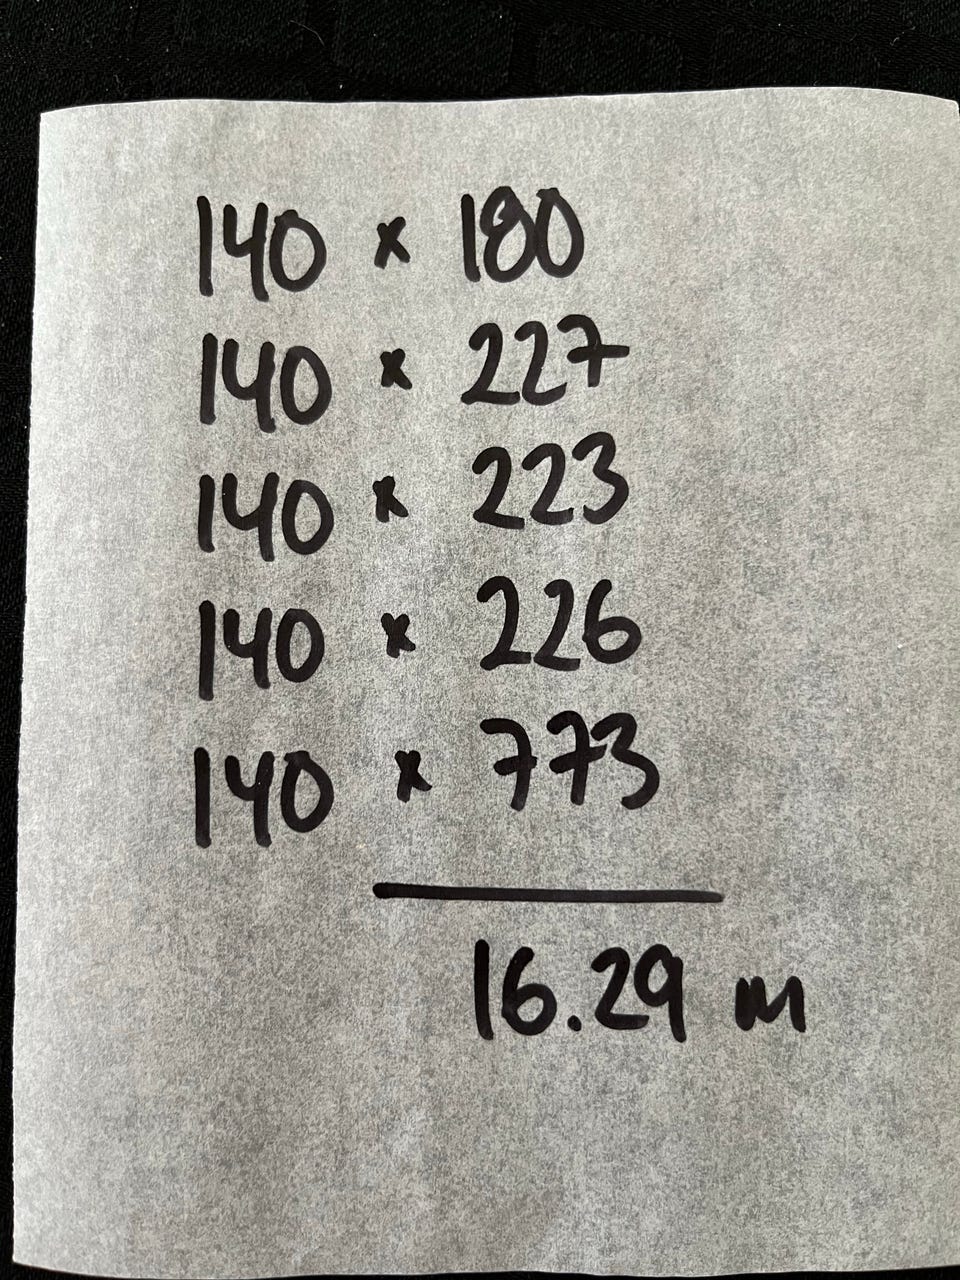 140 x 180
140 x 227
140 x 223
140 x 226
140 x 773
16.29 m